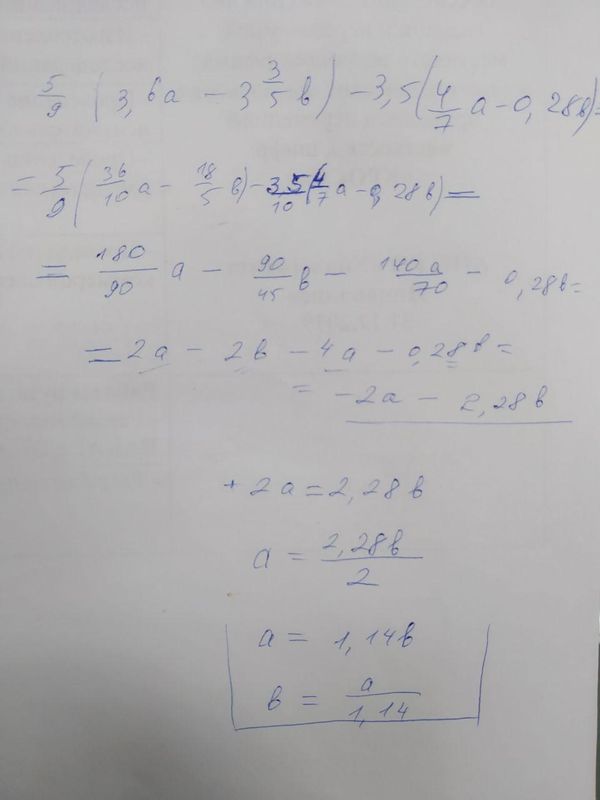 5/9 (3,6a - 3 3/5 в) - 3,5(4/7 a - 0,28в)=
= 5/9 (36/10 a - 18/5 в) - 35/10 (4/7 a - 0,28в) =
= 180/90 a - 90/45 в - 140a/70 - 0,28в=
= 2a - 2в - 4a - 0,28в =
= -2a - 2,28в
+ 2a = 2,28в
a = 2,28в/2
a = 1,14в
в = a/1,14